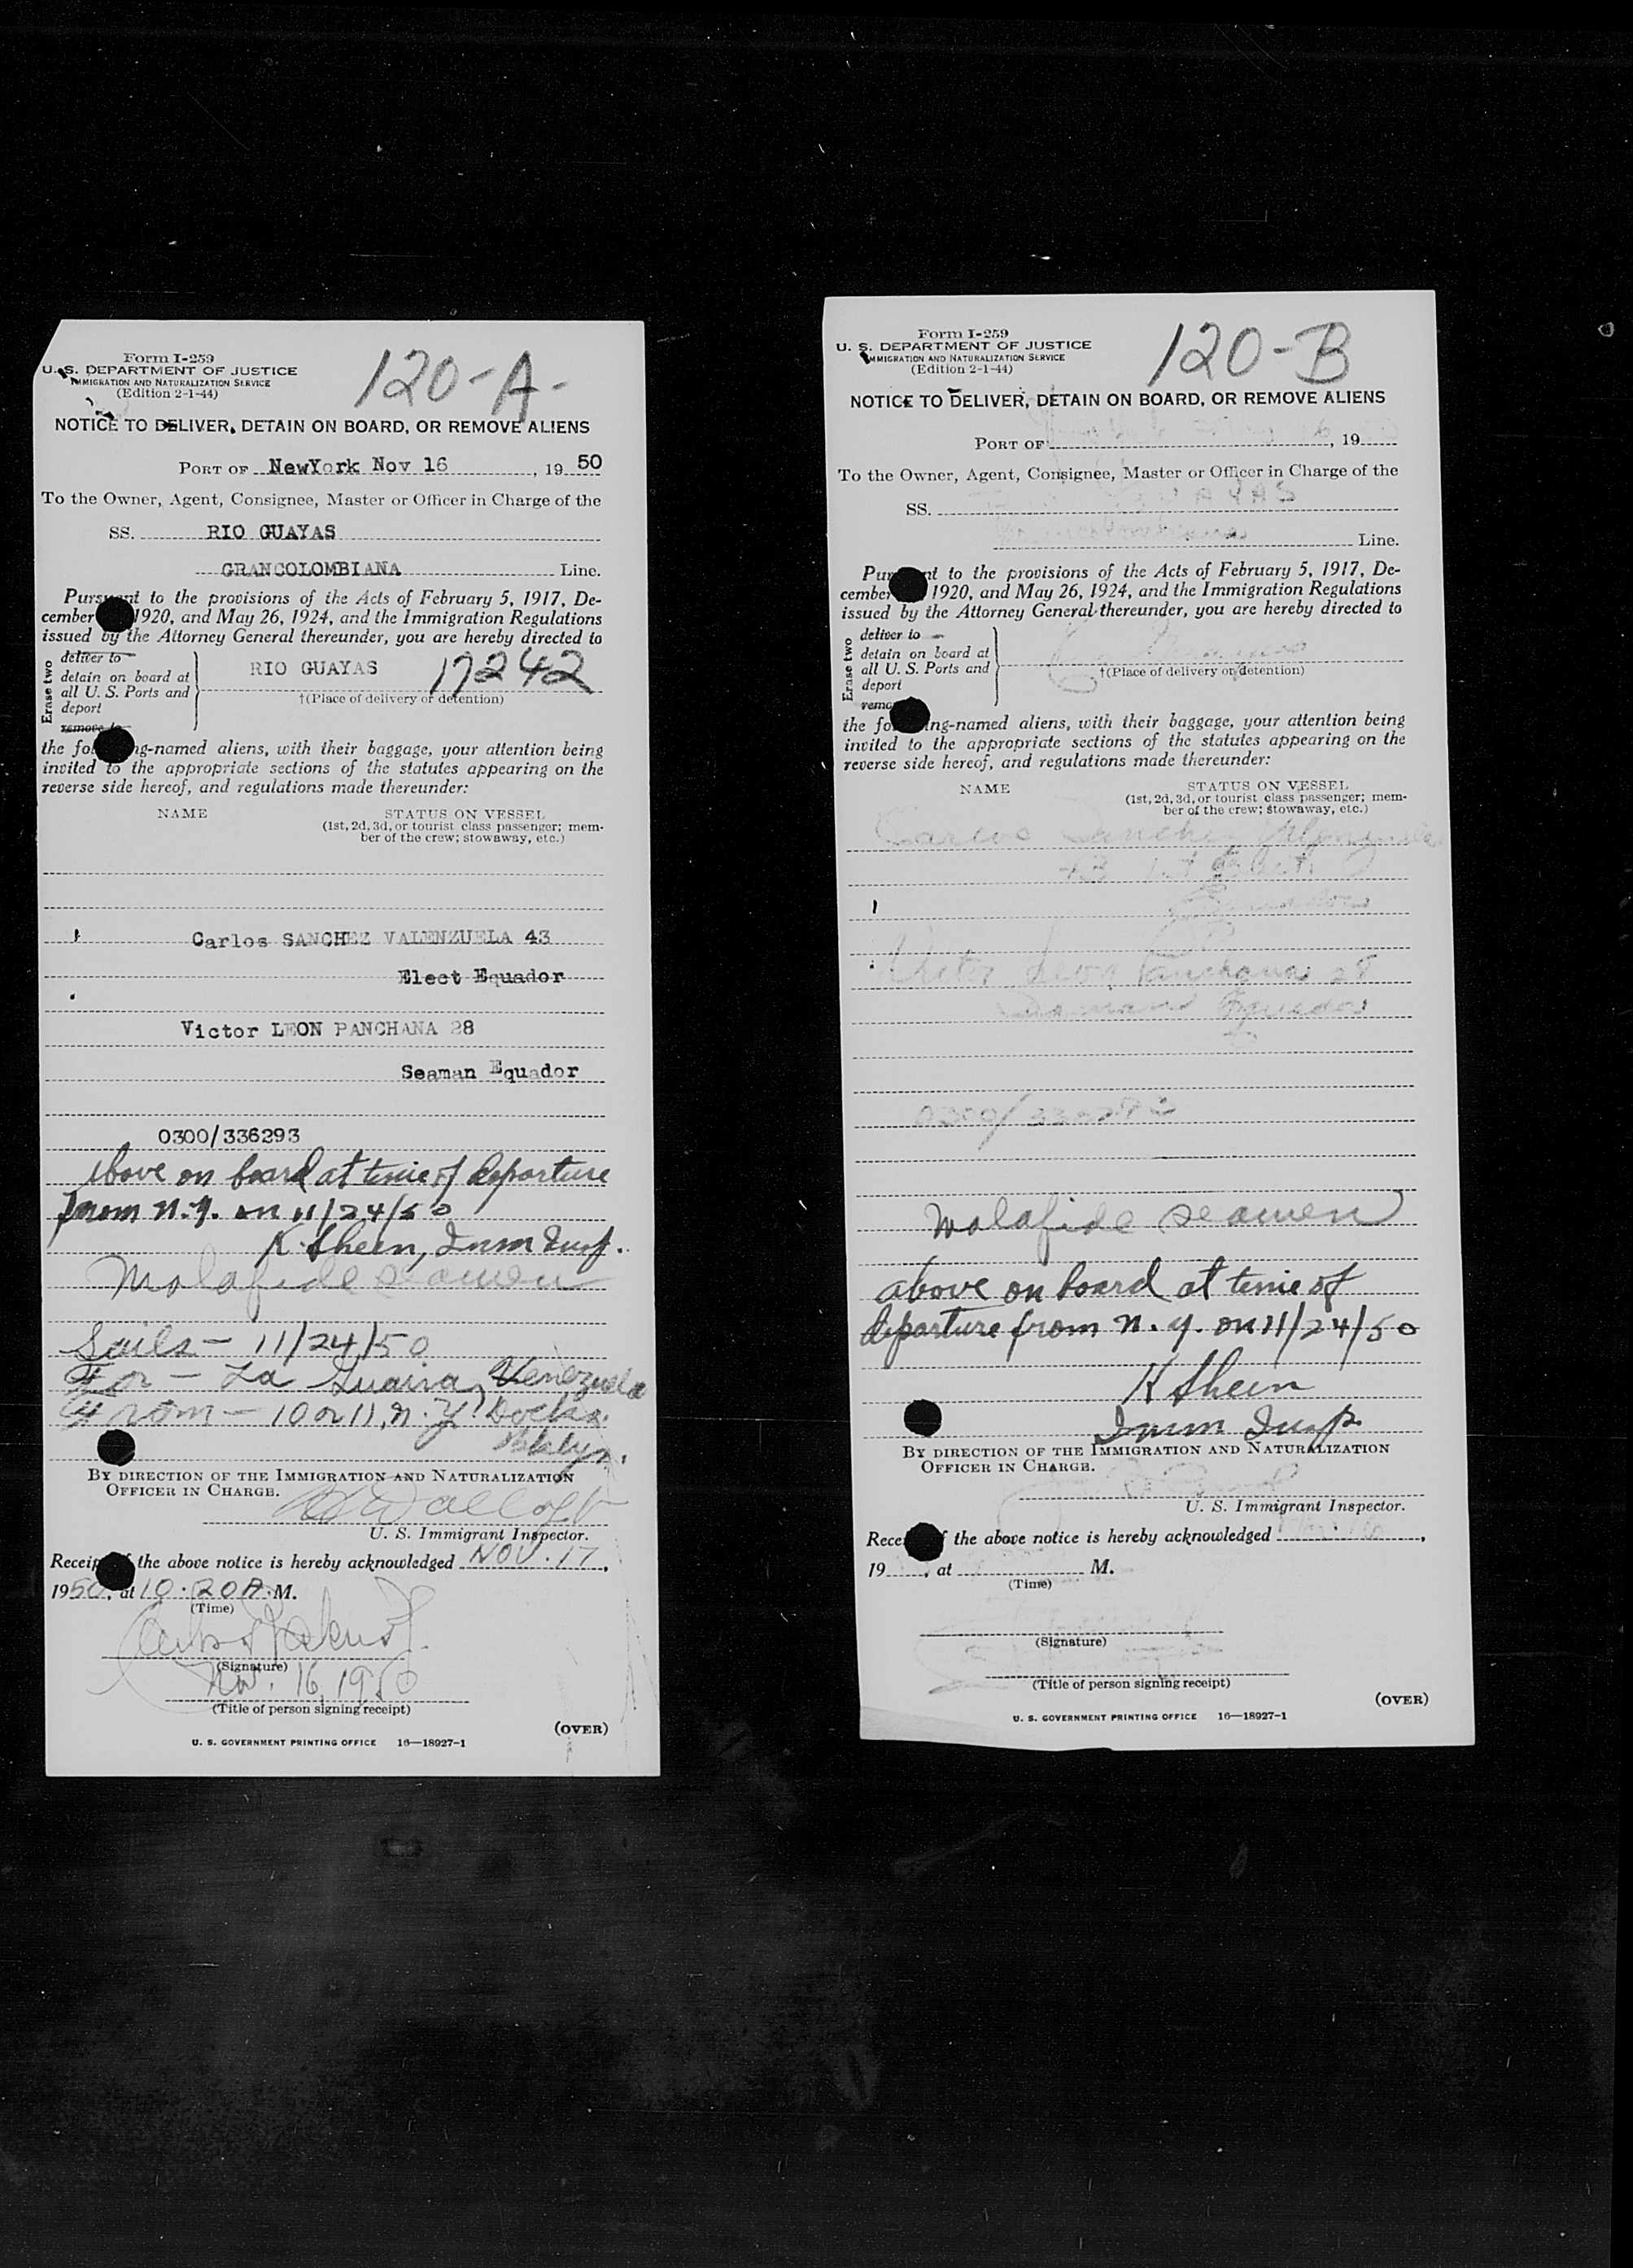 Form I-259
U. S. DEPARTMENT OF JUSTICE
IMMIGRATION AND NATURALIZATION SERVICE
(Edition 2-1-44)
120-A-
NOTICE TO DELIVER, DETAIN ON BOARD, OR REMOVE ALIENS
PORT OF NewYork Nov 16, 19 50
To the Owner, Agent, Consignee, Master or Officer in Charge of the
SS. RIO GUAYAS
GRANCOLOMBIANA Line.
Pursuant to the provisions of the Acts of February 5, 1917, De-
cember 1920, and May 26, 1924, and the Immigration Regulations
issued by the Attorney General thereunder, you are hereby directed to
Erase two
deliver to
detain on board at
all U. S. Ports and
deport
remove to
RIO GUAYAS 17242
†(Place of delivery or detention)
the following-named aliens, with their baggage, your attention being
invited to the appropriate sections of the statutes appearing on the
reverse side hereof, and regulations made thereunder:
NAME STATUS ON VESSEL
(1st, 2d, 3d, or tourist class passenger; mem-
ber of the crew; stowaway, etc.)
Carlos SANCHEZ VALENZUELA 43
Elect Equador
Victor LEON PANCHANA 28
Seaman Equador
0300/336293
above on board at time of departure
from N.Y. on 11/24/50
K. Sheen, Imm Insp.
Malafide seamen
Sails - 11/24/50
For - La Guaira, Venezuela
From - 10 or 11, N.Y. Docks.
Bklyn.
BY DIRECTION OF THE IMMIGRATION AND NATURALIZATION
OFFICER IN CHARGE.
U. S. Immigrant Inspector.
Receipt of the above notice is hereby acknowledged NOV. 17,
1950, at 10:20 A. M.
(Time)
(Signature)
Nov. 16, 1950
(Title of person signing receipt)
(OVER)
U. S. GOVERNMENT PRINTING OFFICE 16—18927-1
Form I-259
U. S. DEPARTMENT OF JUSTICE
IMMIGRATION AND NATURALIZATION SERVICE
(Edition 2-1-44)
120-B
NOTICE TO DELIVER, DETAIN ON BOARD, OR REMOVE ALIENS
PORT OF , 19
To the Owner, Agent, Consignee, Master or Officer in Charge of the
SS. GUAYAS
Line.
Pursuant to the provisions of the Acts of February 5, 1917, De-
cember 1920, and May 26, 1924, and the Immigration Regulations
issued by the Attorney General thereunder, you are hereby directed to
Erase two
deliver to
detain on board at
all U. S. Ports and
deport
remove
†(Place of delivery or detention)
the following-named aliens, with their baggage, your attention being
invited to the appropriate sections of the statutes appearing on the
reverse side hereof, and regulations made thereunder:
NAME STATUS ON VESSEL
(1st, 2d, 3d, or tourist class passenger; mem-
ber of the crew; stowaway, etc.)
Carlos Sanchez Valenzuela
43 Elect
Equador
Victor Leon Panchana 28
Seaman Equador
0300/336293
Malafide seamen
above on board at time of
departure from N.Y. on 11/24/50
K Sheen
Imm Insp.
BY DIRECTION OF THE IMMIGRATION AND NATURALIZATION
OFFICER IN CHARGE.
U. S. Immigrant Inspector.
Receipt of the above notice is hereby acknowledged ,
19 , at M.
(Time)
(Signature)
(Title of person signing receipt)
(OVER)
U. S. GOVERNMENT PRINTING OFFICE 16—18927-1